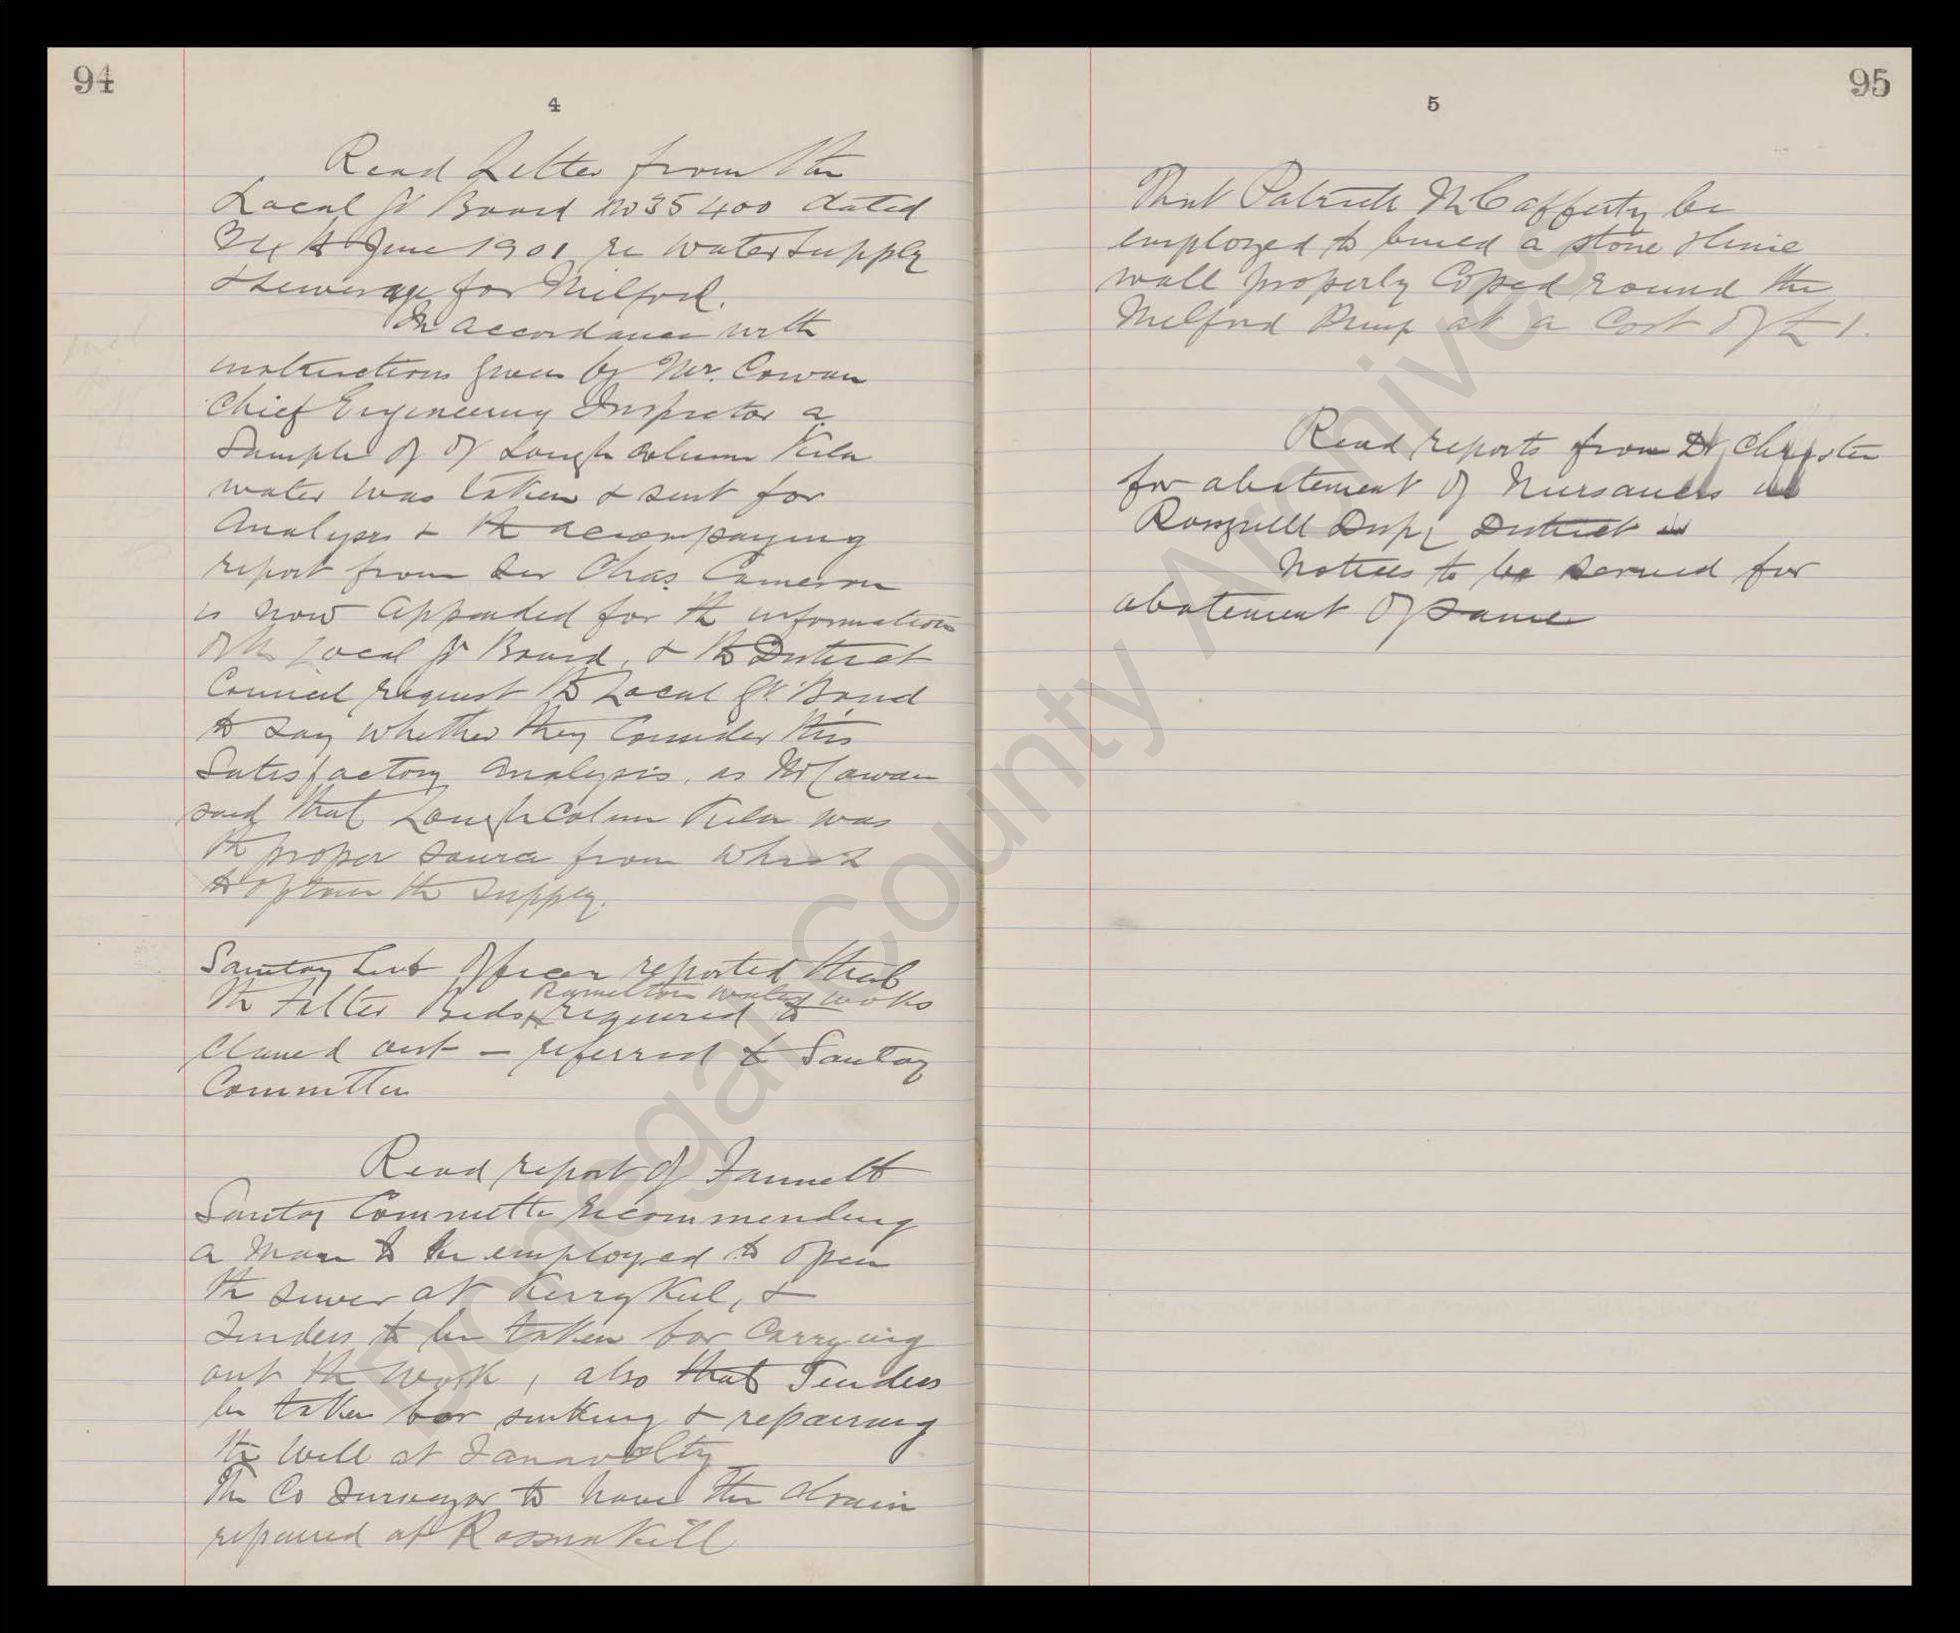 94
4
Read Letter from the
Local Gt Board No 35400 dated
24th June 1901 re Water Supply
& Sewerage for Milford.
In accordance with
instructions given by Mr. Cowan
Chief Engineering Inspector a
Sample of of Lough Column Kila
water was taken & sent for
Analysis & the accompaying
report from Sir Chas. Cameron
is now appended for the information
of the Local Gt Board, & the District
Council request the Local Gt. Board
to say whether they Consider this
Satisfactory Analysis, as Mr Cowan
said that Lough Colum Kila was
the proper source from which
to optain the supply.
Sanitary Sub Officer reported that
Ramelton water works
the Filter Beds x required to
Cleaned out - referred to Sanitary
Committee
Read report of Fannett
Sanitary Committee recommending
a Man to be employed to open
the sewer at Kerrykeel, &
Tenders to be taken for Carrying
out the work, also that Tenders
be taken for sinking & repairing
the Well at
The Co Surveyor to have the drain
repaired at Rossnakill
95
5
That Patrick McCafferty be
employed to build a stone & lime
wall properly Coped round the
Milford Pump at a Cost of £1.
Read reports from Dr
for abatement of Nuisances in
Rosguill Dispy District
Notices to be served for
abatement of same
Donegal County Archives